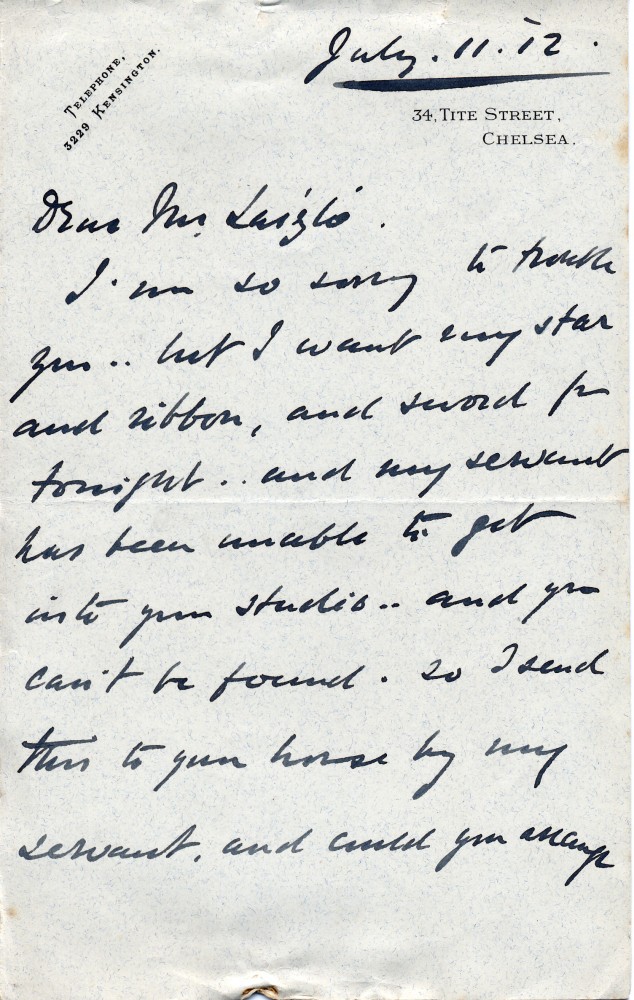 TELEPHONE,
3229 KENSINGTON.
July. 11. 12.
34, TITE STREET,
CHELSEA.
Dear Mr. László.
I'm so sorry to trouble
you.. but I want my star
and ribbon, and sword for
tonight.. and my servant
has been unable to get
into your studio.. and you
can't be found. so I send
this to your house by my
servant. and could you arrange